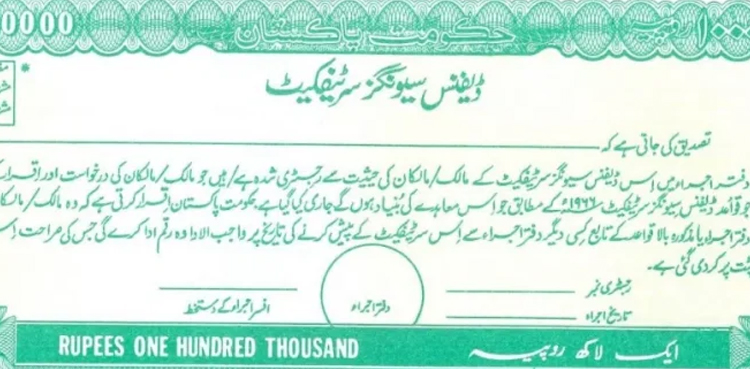 0000 حکومت پاکستان ۱۰۰ روپیہ
ڈیفنس سیونگز سرٹیفکیٹ
*
تصدیق کی جاتی ہے کہ
دفتر اجراء میں اس ڈیفنس سیونگز سرٹیفکیٹ کے مالک/مالکان کی حیثیت سے رجسٹری شدہ ہے/ہیں جو مالک/مالکان کی درخواست اور اقرار
قواعد ڈیفنس سیونگز سرٹیفکیٹ ۱۹۶۶ء کے مطابق جو اس معاہدے کی بنیاد ہوں گے جاری کیا گیا ہے حکومت پاکستان اقرار کرتی ہے کہ وہ مالک/
دفتر اجراء یا مذکورہ بالا قواعد کے تابع کسی دیگر دفتر اجراء سے اس سرٹیفکیٹ کے پیش کرنے کی تاریخ پر واجب الادا وہ رقم ادا کرے گی جس کی صراحت
پر کر دی گئی ہے۔
رجسٹری نمبر
تاریخ اجراء دفتر اجراء افسر اجراء کے دستخط
RUPEES ONE HUNDRED THOUSAND ایک لاکھ روپیہ